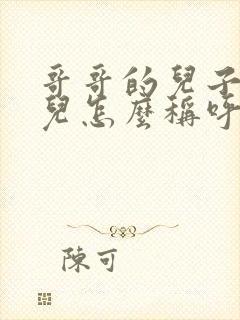 哥哥的兒子
兒怎麼稱呼
陳可